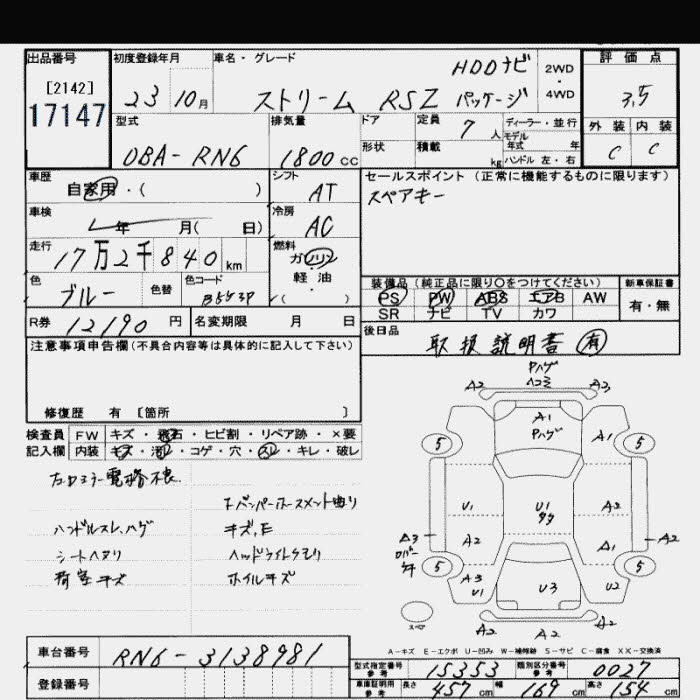 出品番号 初度登録年月 車名・グレード 評価点
[2142]
17147
23 10月 ストリーム RSZ HDDナビ パッケージ 2WD・4WD 3,5
型式 排気量 ドア 定員 ディーラー・並行 外装 内装
DBA-RN6 1800cc 形状 積載 7人 kg モデル年式 年 ハンドル 左・右 C C
車歴 シフト セールスポイント (正常に機能するものに限ります)
自家用・( ) AT スペアキー
車検 年 月( 日) 冷房 AC
走行 17万2千840km 燃料 ガソリン 軽・油 ( )
色 ブルー 色替 色コード B553P
装備品 (純正品に限り〇をつけてください) 新車保証書
PS PW ABS エアB AW 有・無
SR ナビ TV カワ
R券 12190円 名変期限 月 日 後日品 取扱説明書 有
注意事項申告欄(不具合内容等は具体的に記入して下さい)
修復歴 有 [箇所 ]
検査員 FW キズ・飛石・ヒビ割・リペア跡・×要
記入欄 内装 キズ・汚・コゲ・穴・スレ・キレ・破レ
ハンドルスレ,ハゲ キズ,E
荷室キズ ホイルキズ
Pハゲ
ヘコミ
A2 A3
A1
Pハゲ
5 A1 5
U1 U1 A2
A2 A1
A3 A2
5 5
A3 U1 U3 U2
A2 A2 U2
スペア
A-キズ E-エクボ U-凹み W-補修跡 S-サビ C-腐食 XX-交換済
車台番号 RN6-3138981
登録番号
型式指定番号 参考 15353 類別区分番号 参考 0027
車庫証明用 参考 長さ 457cm 幅 169cm 高さ 154cm